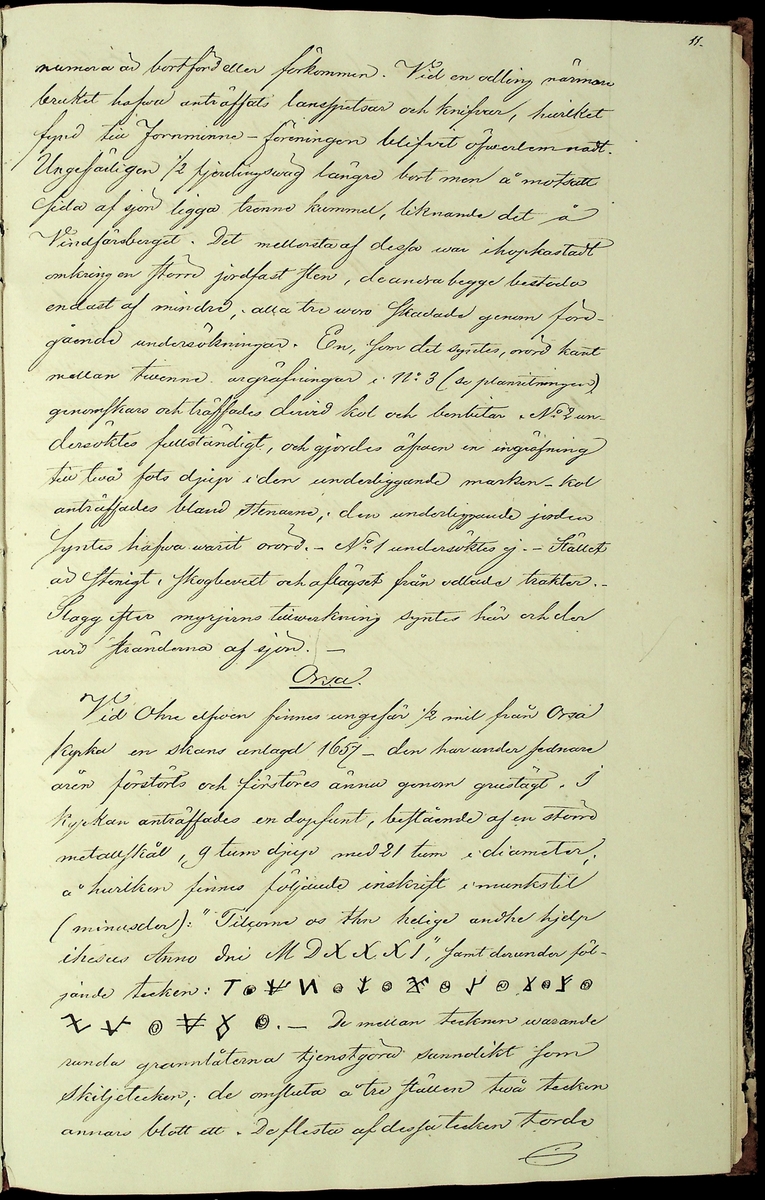 11.
numera är bortförd eller förkommen. Vid en odling närmare
bruket hafwa anträffats lansspetsar och knifvar, hvilket
fynd till Fornminne-föreningen blifvit öfwerlemnadt.
Ungefärligen 1/2 fjerdingswäg längre bort men å motsatt
sida af sjön ligga trenne kummel, liknande det å
Vindfärsberget. Det mellersta af dessa war ihopkastadt
omkring en större jordfast sten, de andra begge bestodo
endast af mindre, alla tre woro skadade genom före-
gående undersökningar. En, som det syntes, orörd kant
mellan twenne urgräfningar i No 3 (se planritningen)
genomskars och träffades dervid kol och benbitar. No 2 un-
dersöktes fullständigt, och gjordes äfwen en ingräfning
till två fots djup i den underliggande marken – kol
anträffades bland stenarne, den underliggande jorden
syntes hafwa warit orörd. – No 1 undersöktes ej. – Stället
är stenigt, skogbevext och aflägset från odlade trakter. –
Slagg efter myrjerns tillwerkning syntes här och der
vid stränderna af sjön. –
Orsa.
Vid Ohre elfven finnes ungefär 1/2 mil från Orsa
kyrka en skans anlagd 1657 – den har under sednare
åren förstörts och förstöres ännu genom grustägt. I
kyrkan anträffades en dopfunt, bestående af en större
metallskål, 9 tum djup med 21 tum i diameter,
å hvilken finnes följande inskrift i munkstil
(minuscler): "Tilcome os thn helige andhe hielp
ihesus Anno dni M D X X X I", samt derunder föl-
jande tecken:
. – De mellan tecknen warande
runda grannlåterna tjenstgöra sannolikt som
skiljetecken; de omsluta å tre ställen två tecken
annars blott ett. De flesta af dessa tecken torde